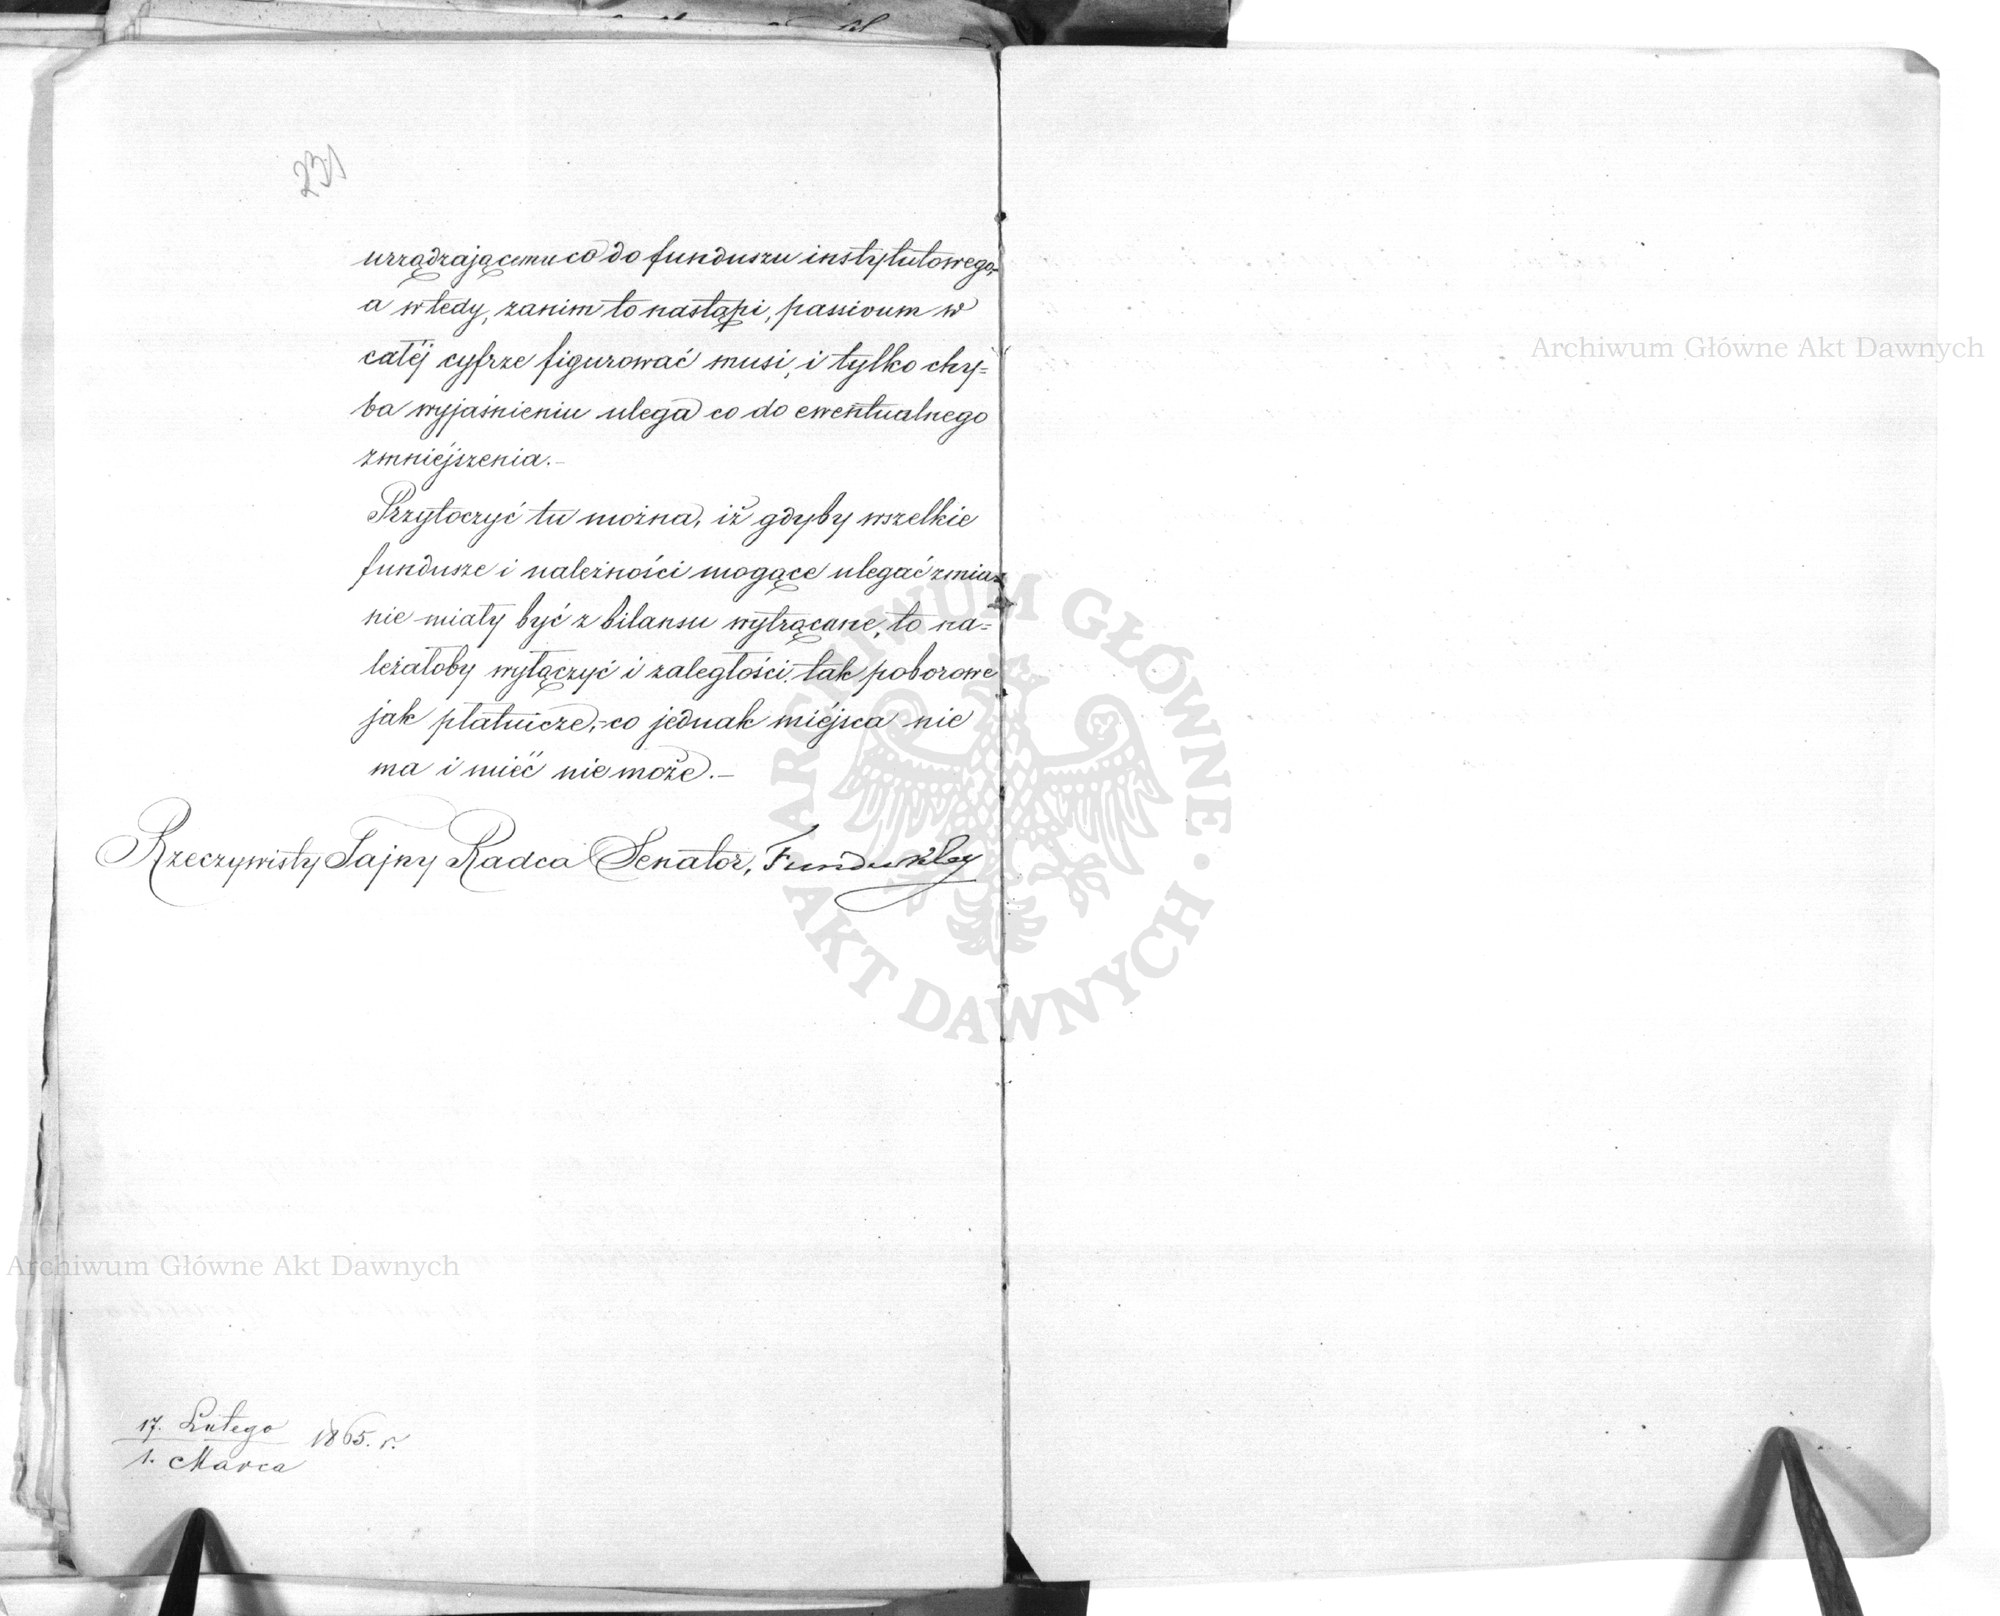 231
urządzającemu co do funduszu instytutowego,
a wtedy, zanim to nastąpi, passivum w
całéj cyfrze figurować musi, i tylko chy=
ba wyjaśnieniu ulega co do ewentualnego
zmniéjszenia.—
Przytoczyć tu można, iż gdyby wszelkie
fundusze i należności mogące ulegać zmia=
nie miały być z bilansu wytrącane, to na=
leżałoby wyłączyć i zaległości tak poborowe
jak płatnicze,—co jednak miéjsca nie
ma i mieć nie może.—
Rzeczywisty Tajny Radca Senator, Fundukley
17. Lutego
1. Marca
1865. r.
ARCHIWUM GŁÓWNE AKT DAWNYCH
Archiwum Główne Akt Dawnych
Archiwum Główne Akt Dawnych